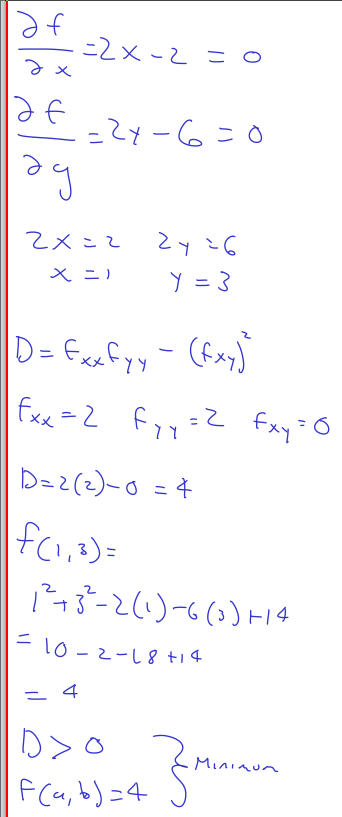 ∂f/∂x = 2x - 2 = 0
∂f/∂y = 2y - 6 = 0
2x = 2   2y = 6
x = 1   y = 3
D = fxx fyy - (fxy)²
fxx = 2   fyy = 2   fxy = 0
D = 2(2) - 0 = 4
f(1,3) =
1² + 3² - 2(1) - 6(3) + 14
= 10 - 2 - 18 + 14
= 4
D > 0 } Minimum
F(a,b) = 4